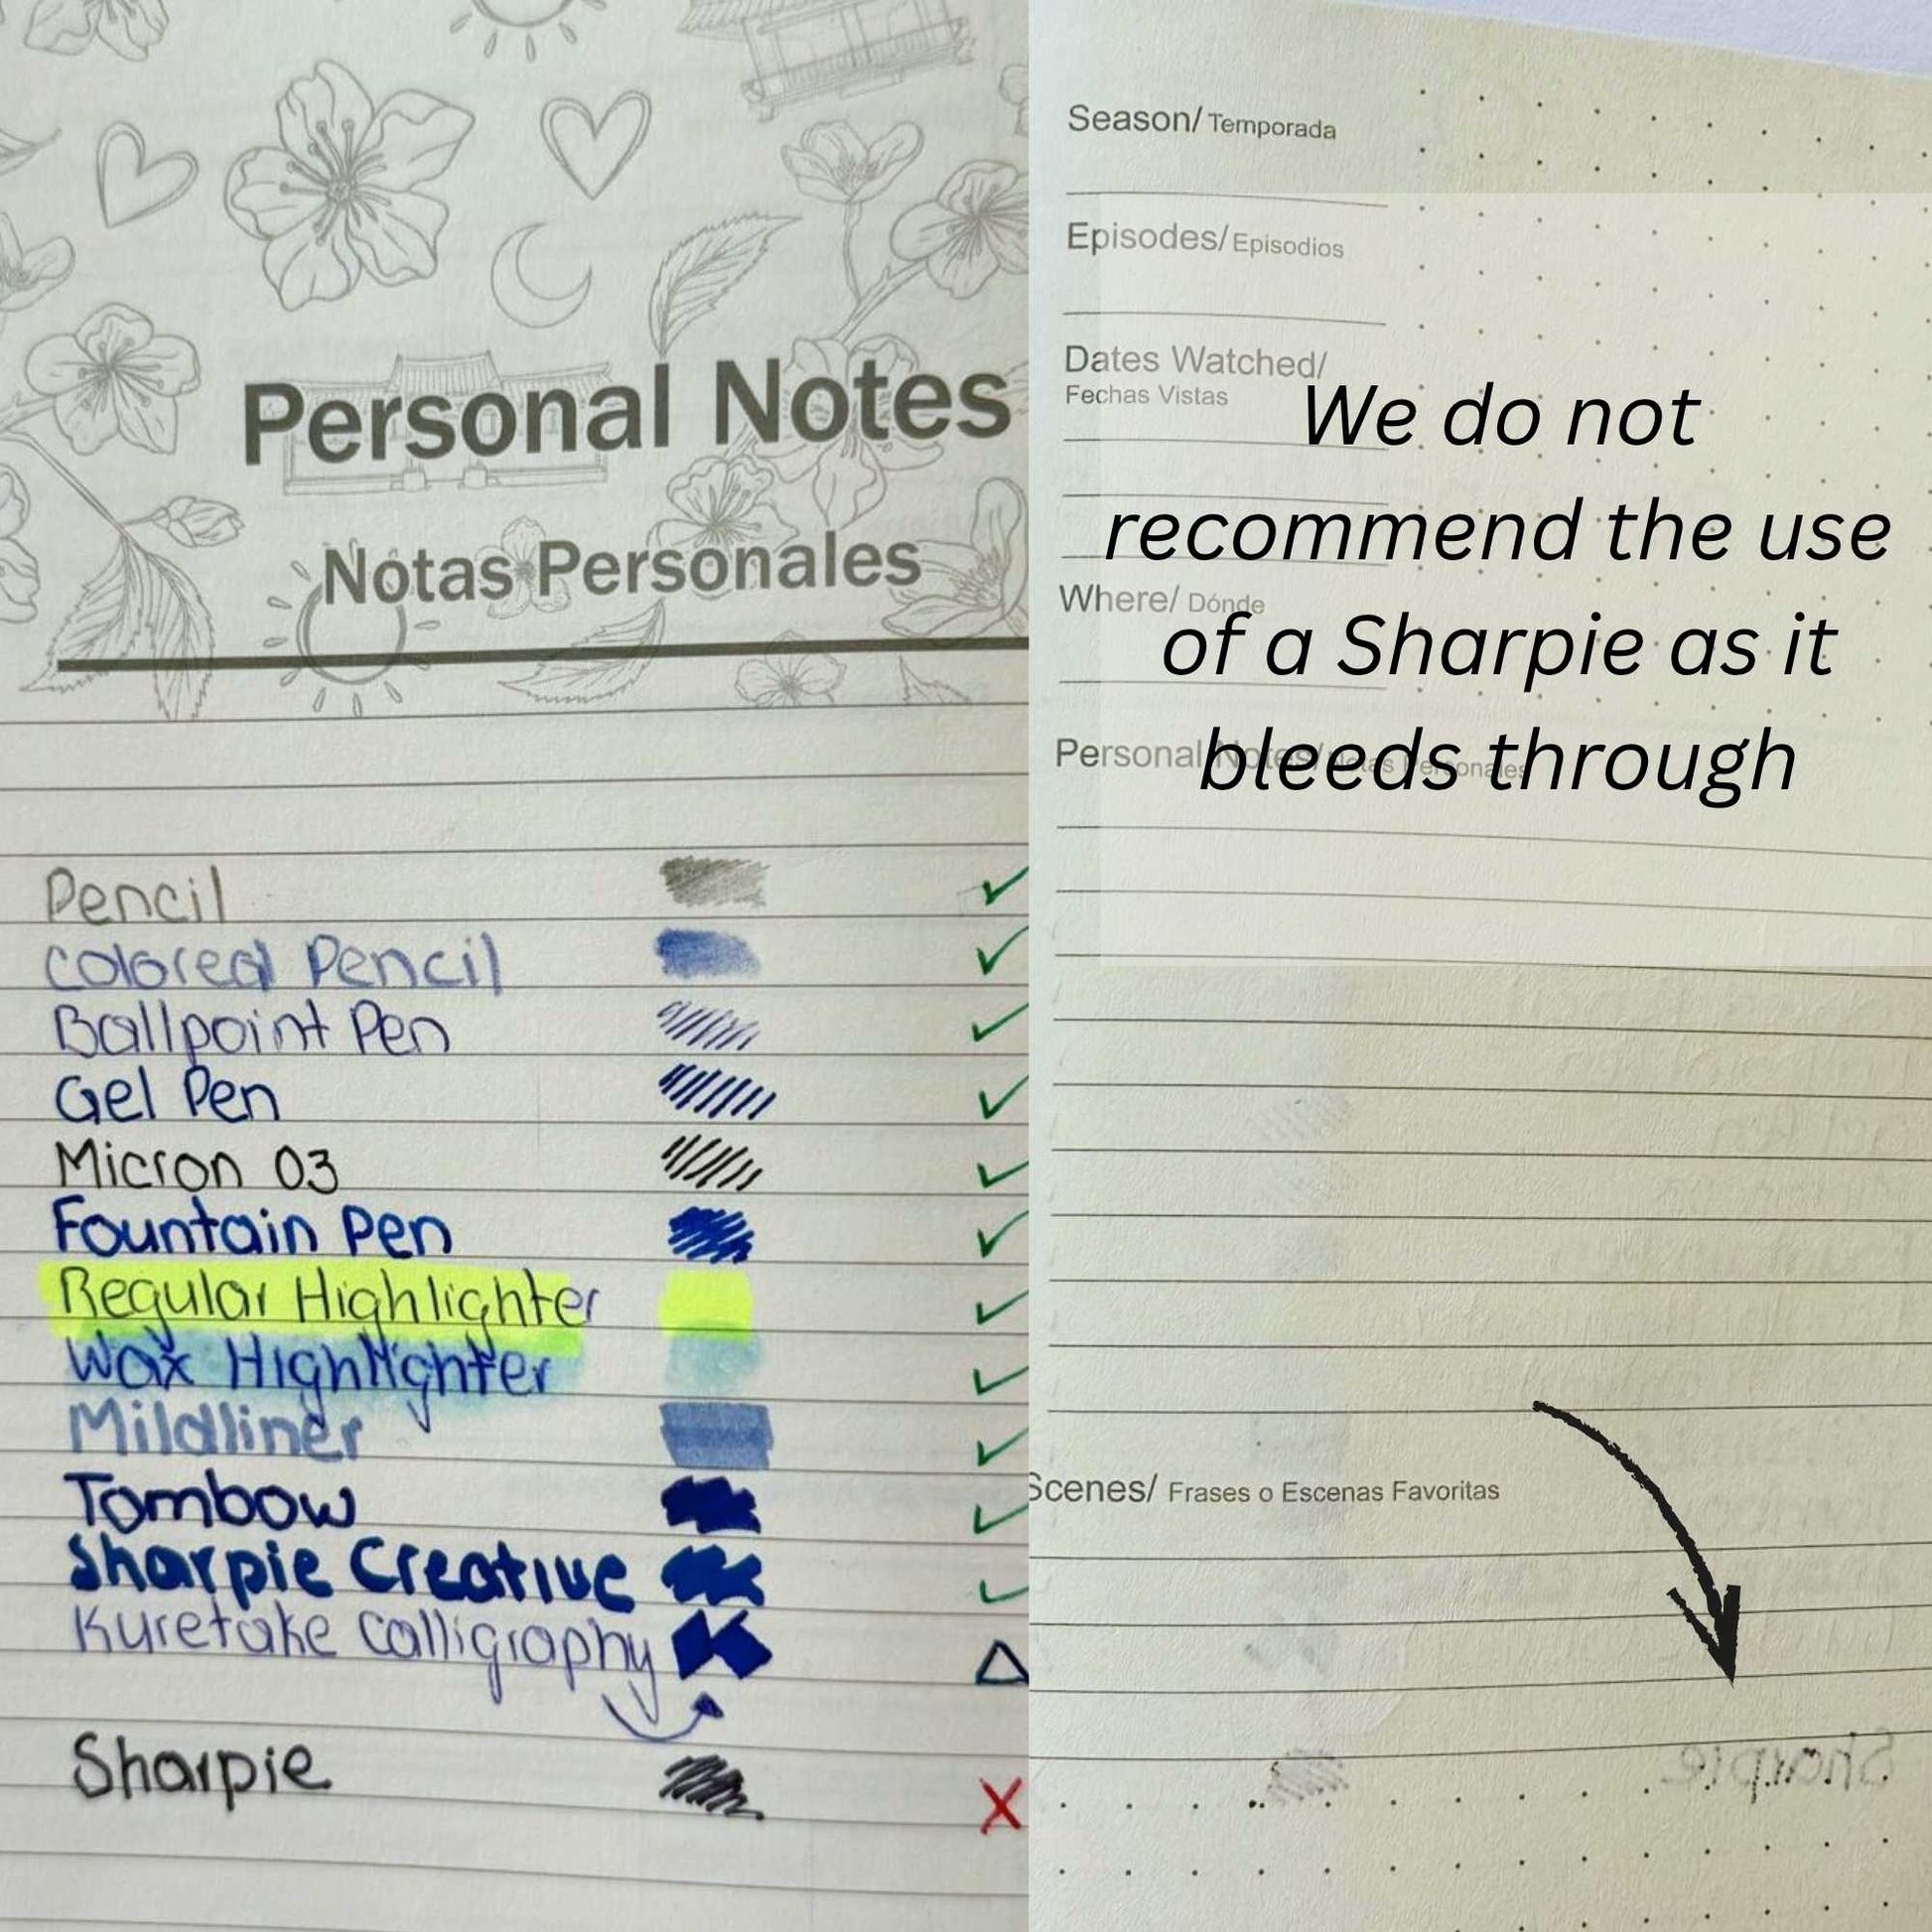 Personal Notes
Notas Personales
Pencil
Colored Pencil
Ballpoint Pen
Gel Pen
Micron 03
Fountain Pen
Regular Highlighter
Wax Highlighter
Mildliner
Tombow
Sharpie Creative
Kuretake Calligraphy
Sharpie
Season/ Temporada
Episodes/ Episodios
Dates Watched/
Fechas Vistas
Where/ Dónde
Personal Notes/ Notas Personales
We do not
recommend the use
of a Sharpie as it
bleeds through
Scenes/ Frases o Escenas Favoritas
Sharpie